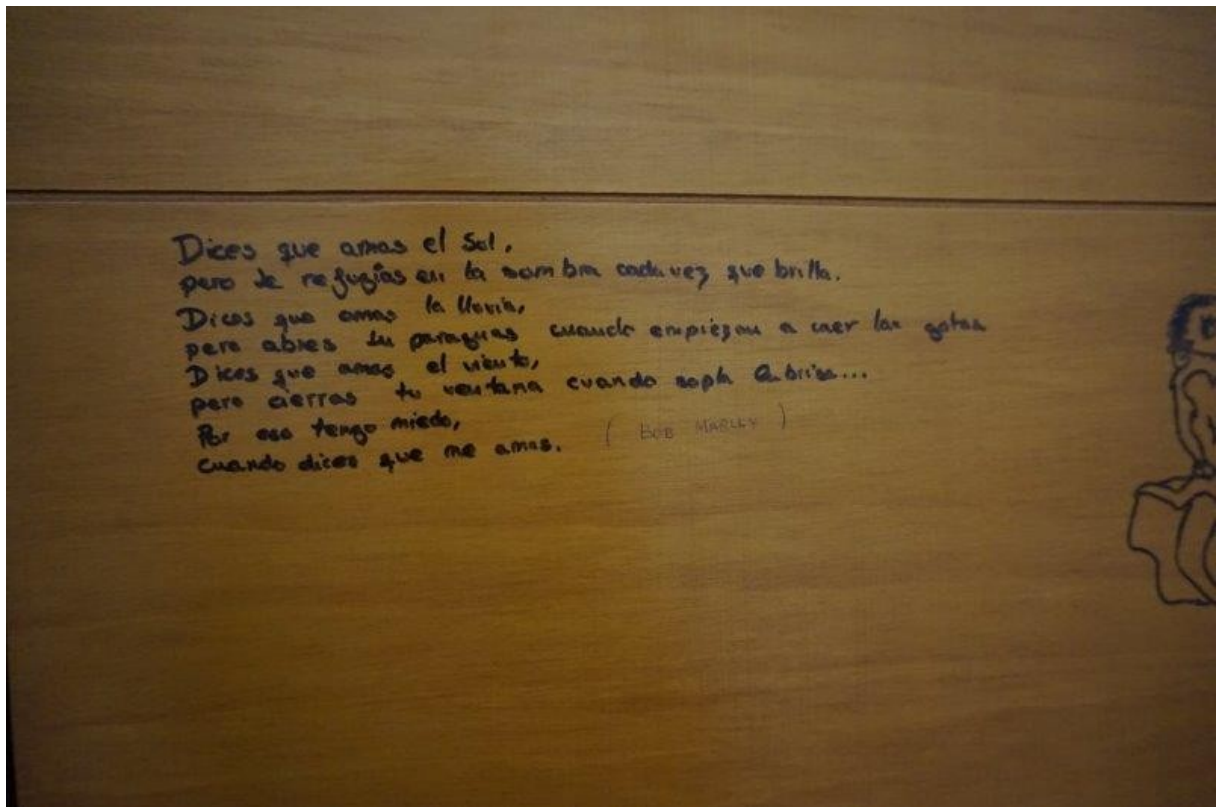 Dices que amas el Sol,
pero te refugias en la sombra cada vez que brilla.
Dices que amas la lluvia,
pero abres tu paraguas cuando empiezan a caer las gotas
Dices que amas el viento,
pero cierras tu ventana cuando sopla la brisa...
Por eso tengo miedo,
cuando dices que me amas. ( BOB MARLEY )